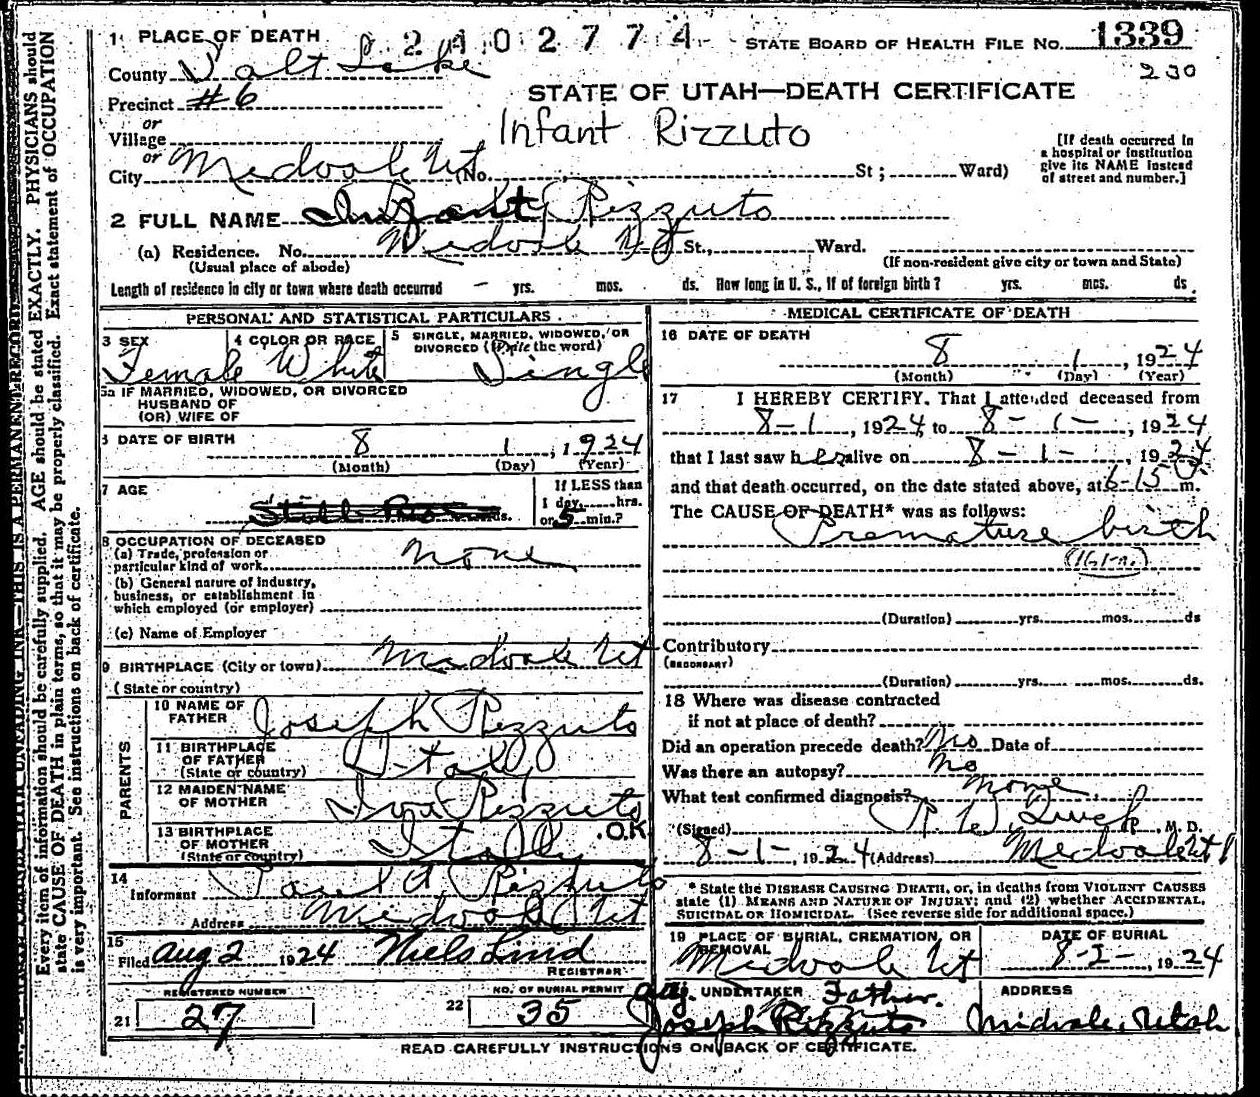 1 PLACE OF DEATH 2402774 STATE BOARD OF HEALTH FILE No. 1339
County Salt Lake 230
Precinct #6 STATE OF UTAH—DEATH CERTIFICATE
or
Village Infant Rizzuto
or
City Midvale Ut (No. St; Ward)
[If death occurred in
a hospital or institution
give its NAME instead
of street and number.]
2 FULL NAME Infant Rizzuto
(a) Residence. No. Midvale Ut St., Ward.
(Usual place of abode) (If non-resident give city or town and State)
Length of residence in city or town where death occurred yrs. mos. ds. How long in U. S., if of foreign birth? yrs. mos. ds.
PERSONAL AND STATISTICAL PARTICULARS
3 SEX 4 COLOR OR RACE 5 SINGLE, MARRIED, WIDOWED, OR
DIVORCED (Write the word)
Female White Single
5a IF MARRIED, WIDOWED, OR DIVORCED
HUSBAND OF
(OR) WIFE OF
6 DATE OF BIRTH 8 1, 1924
(Month) (Day) (Year)
7 AGE If LESS than
1 day, hrs.
Still Born ds. or 5 min.?
8 OCCUPATION OF DECEASED
(a) Trade, profession or
particular kind of work None
(b) General nature of industry,
business, or establishment in
which employed (or employer)
(c) Name of Employer
9 BIRTHPLACE (City or town) Midvale Ut
(State or country)
PARENTS
10 NAME OF
FATHER Joseph Rizzuto
11 BIRTHPLACE
OF FATHER
(State or country) Italy
12 MAIDEN NAME
OF MOTHER Iva Rizzuto
13 BIRTHPLACE
OF MOTHER
(State or country) Italy .O.K.
14
Informant Rizzuto
Address Midvale Ut
15
Filed Aug 2 1924 Niels Lind
REGISTRAR
REGISTERED NUMBER NO. OF BURIAL PERMIT
21 27 22 35
MEDICAL CERTIFICATE OF DEATH
16 DATE OF DEATH
8 1, 1924
(Month) (Day) (Year)
17 I HEREBY CERTIFY, That I attended deceased from
8-1, 1924, to 8-1-, 1924
that I last saw her alive on 8-1-, 1924
and that death occurred, on the date stated above, at 6-15 P.m.
The CAUSE OF DEATH* was as follows:
Premature birth
(161-a.)
(Duration) yrs. mos. ds
Contributory
(SECONDARY)
(Duration) yrs. mos. ds.
18 Where was disease contracted
if not at place of death?
Did an operation precede death? No Date of
Was there an autopsy? No
What test confirmed diagnosis? None
(Signed) M. D.
8-1-, 1924 (Address) Midvale Ut
* State the DISEASE CAUSING DEATH, or, in deaths from VIOLENT CAUSES
state (1) MEANS AND NATURE OF INJURY; and (2) whether ACCIDENTAL,
SUICIDAL OR HOMICIDAL. (See reverse side for additional space.)
19 PLACE OF BURIAL, CREMATION, OR
REMOVAL DATE OF BURIAL
Midvale Ut 8-2-, 1924
UNDERTAKER Father. ADDRESS
Joseph Rizzuto Midvale, Utah
READ CAREFULLY INSTRUCTIONS ON BACK OF CERTIFICATE.
Every item of information should be carefully supplied. AGE should be stated EXACTLY. PHYSICIANS should
state CAUSE OF DEATH in plain terms, so that it may be properly classified. Exact statement of OCCUPATION
is very important. See instructions on back of certificate.
WITH UNFADING INK—THIS IS A PERMANENT RECORD